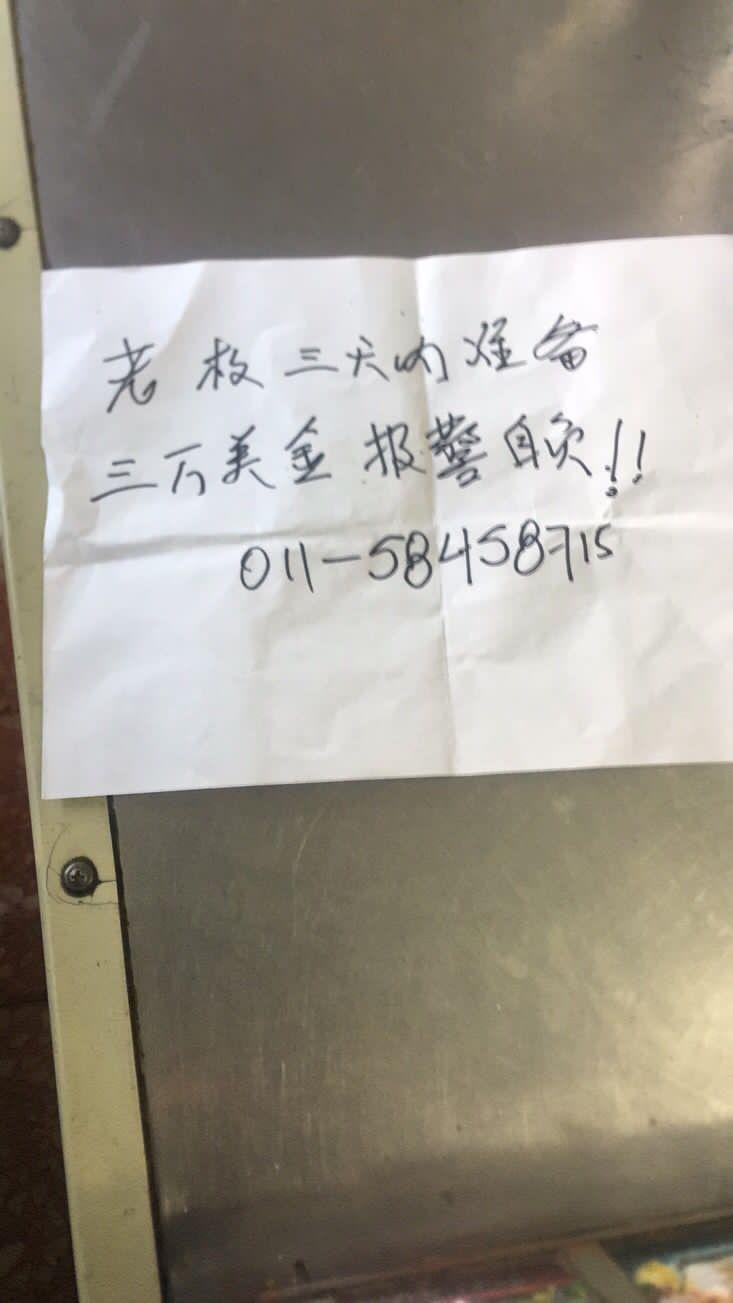 老板三天内准备
三万美金报警自负!!
011-58458715